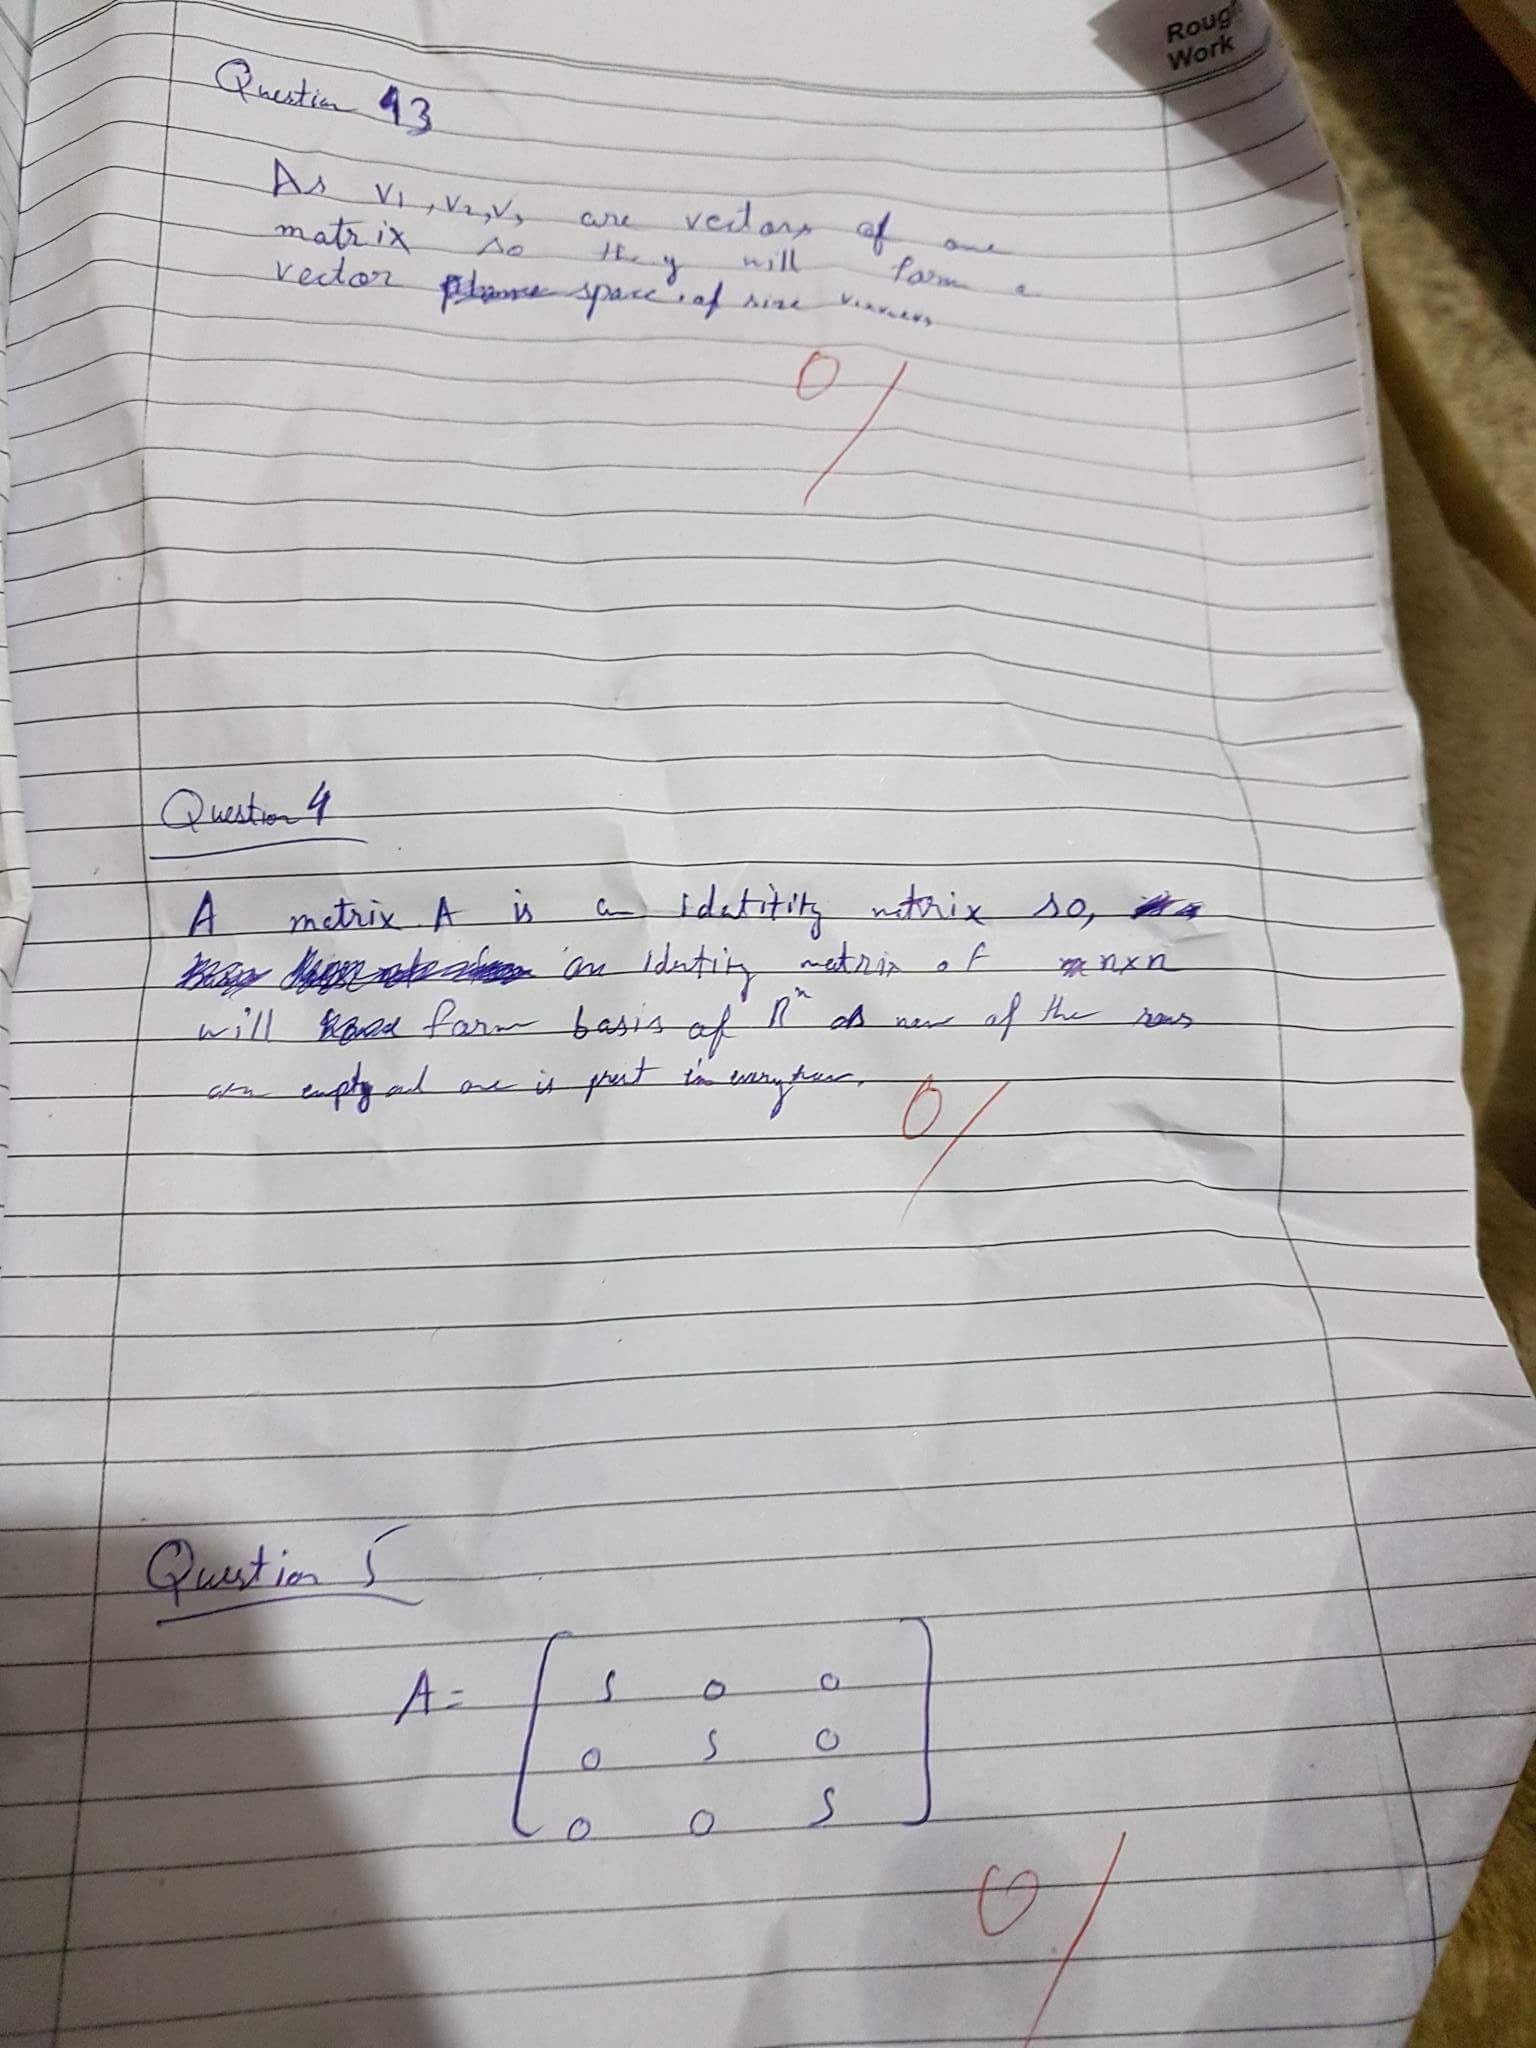 Rough
Work
Question 3
As v1, v2, v3 are vectors of one
matrix so they will form a
vector space of size
0/
Question 4
A matrix A is a Idetitity matrix so,
an identity matrix of n×n
will form basis of Rⁿ as of the rows
empty and one is in every row.
0/
Question 5
A= 5 0 0
0 5 0
0 0 5
0/